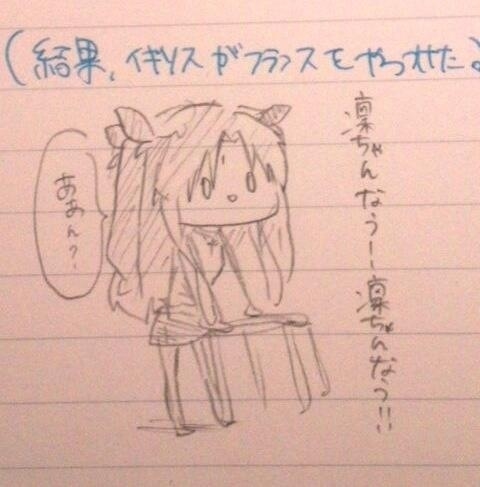 (結果,イギリスがフランスを
凛ちゃんなうー凛ちゃんなう!!
ああん?